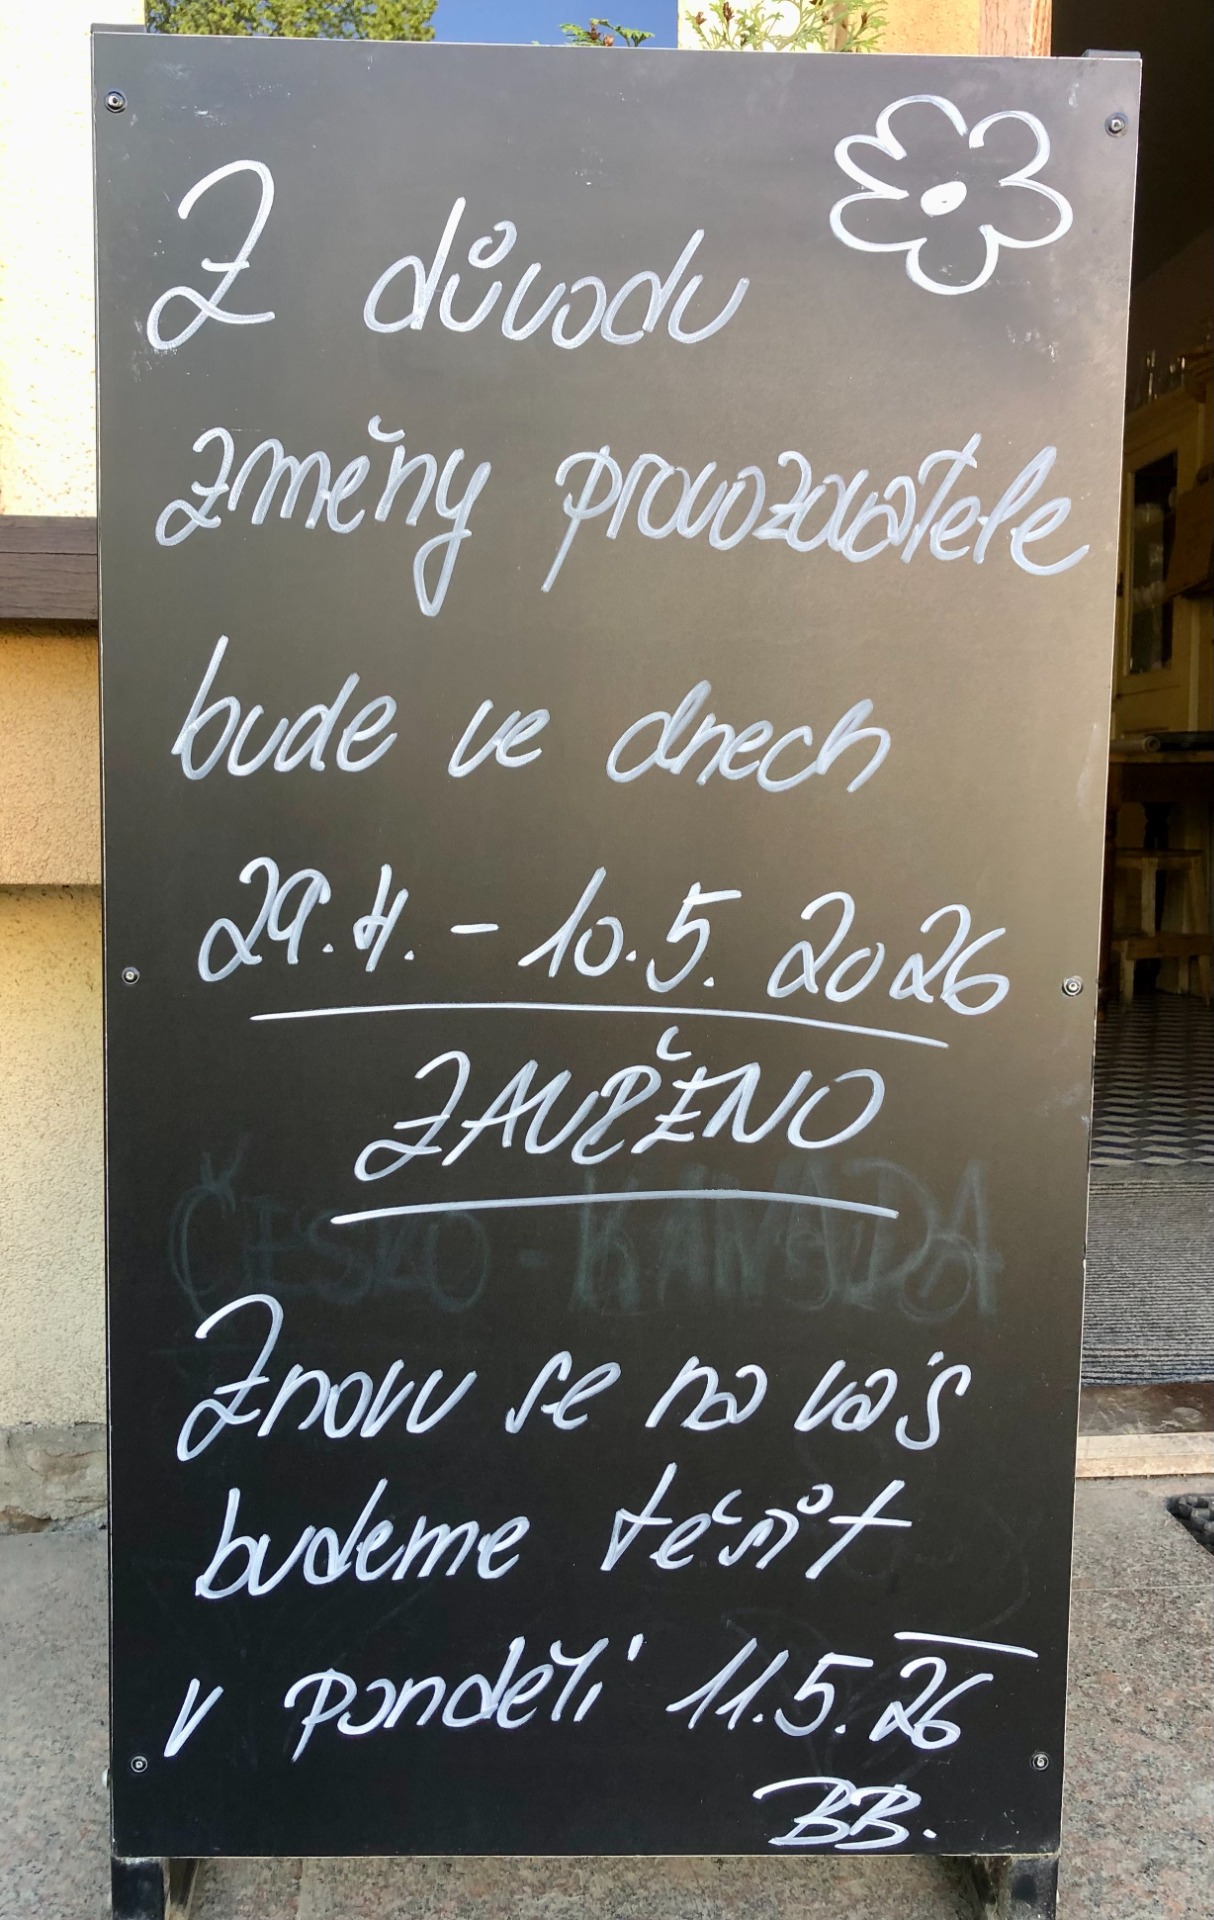 Z důvodu
změny provozovatele
bude ve dnech
29.4. - 10.5. 2026
ZAVŘENO
ČESKO - KANADA
Znovu se na vás
budeme těšit
v pondělí 11.5.26
BB.